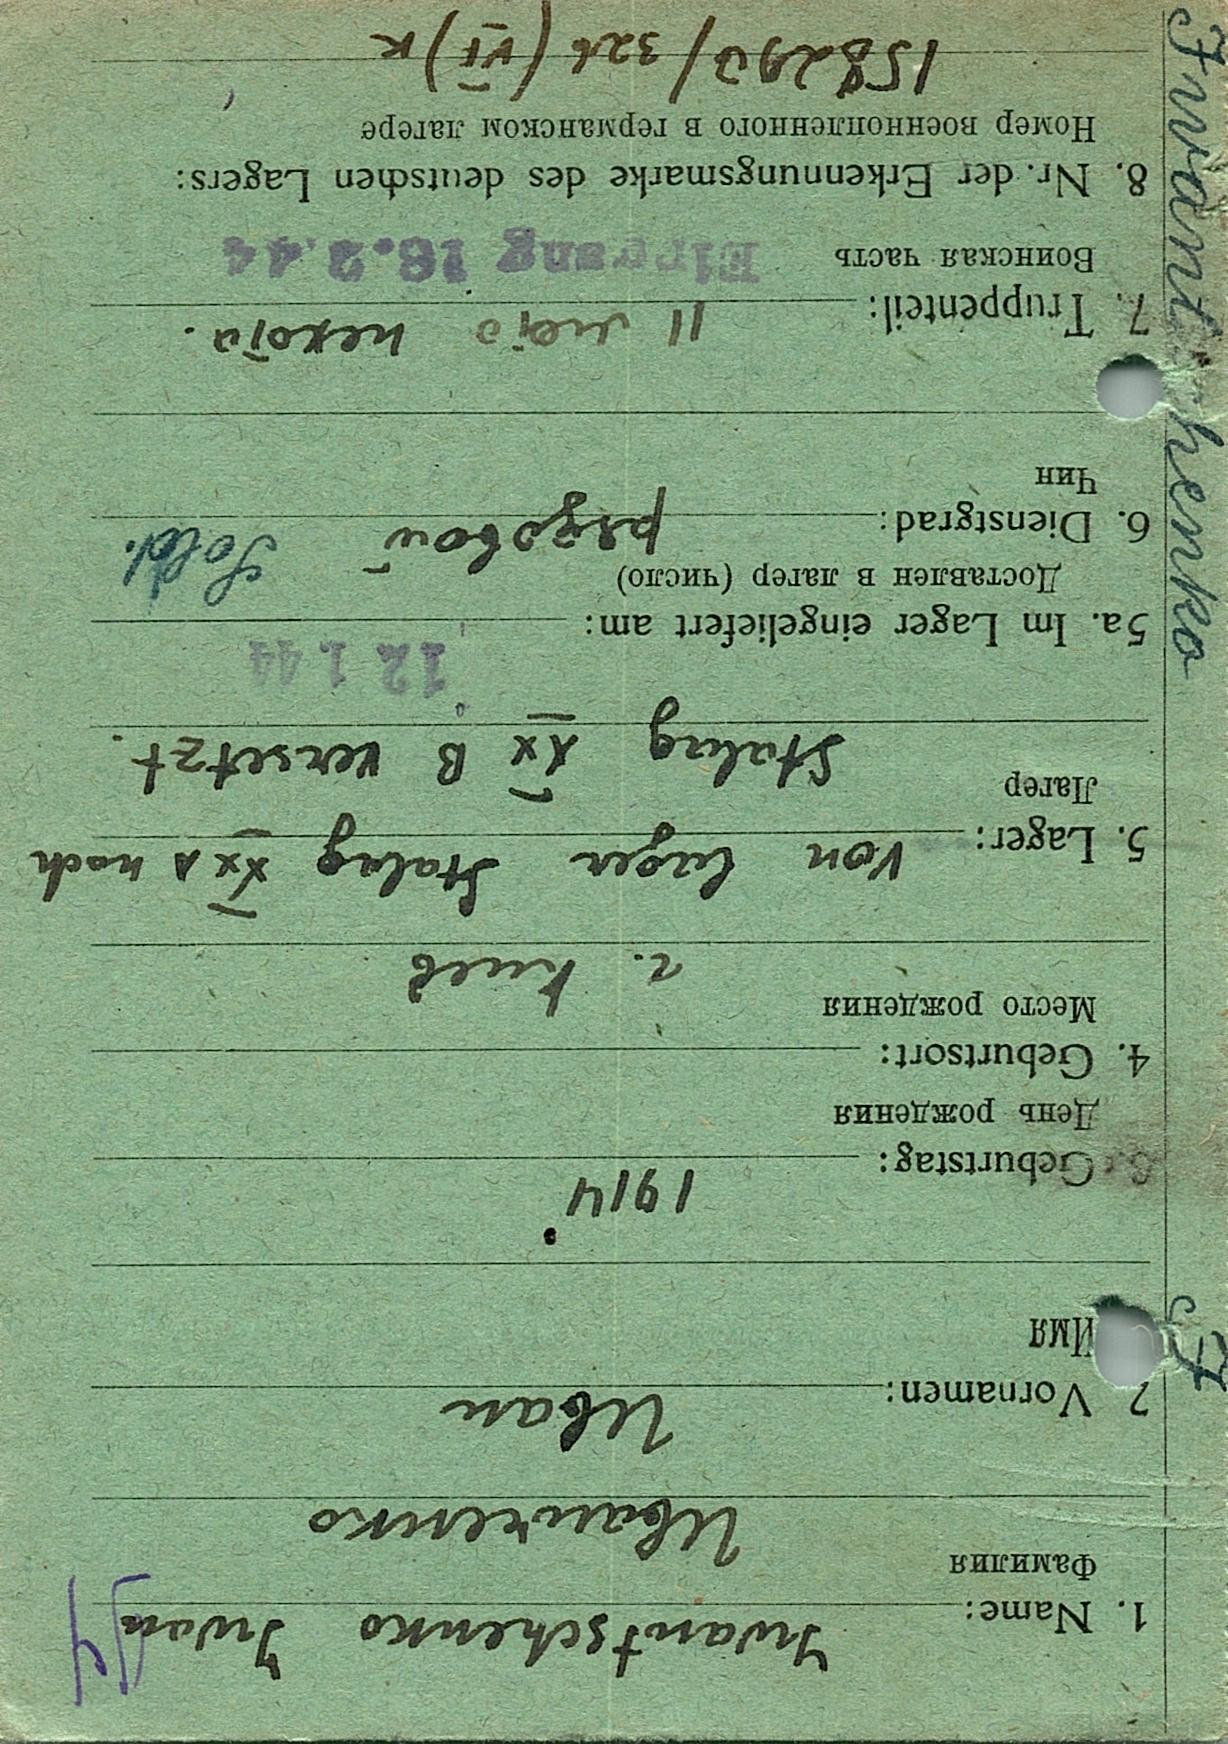 1. Name: Iwantschenko Iwan
Фамилия
Иванченко
2 Vornamen: Иван
Имя
3. Geburtstag: 1914
День рождения
4. Geburtsort:
Место рождения
г. Киев
5. Lager: Von Lager Stalag XX A nach
Лагер
Stalag XX B versetzt.
12 1. 44
5a. Im Lager eingeliefert am:
Доставлен в лагер (число)
6. Dienstgrad: рядовой Sold.
Чин
7. Truppenteil: 11 пехота.
Воинская часть Eingang 16.2.44
8. Nr. der Erkennungsmarke des deutschen Lagers:
Номер военнопленного в германском лагере
/326 (VI) K
Iwantschenko